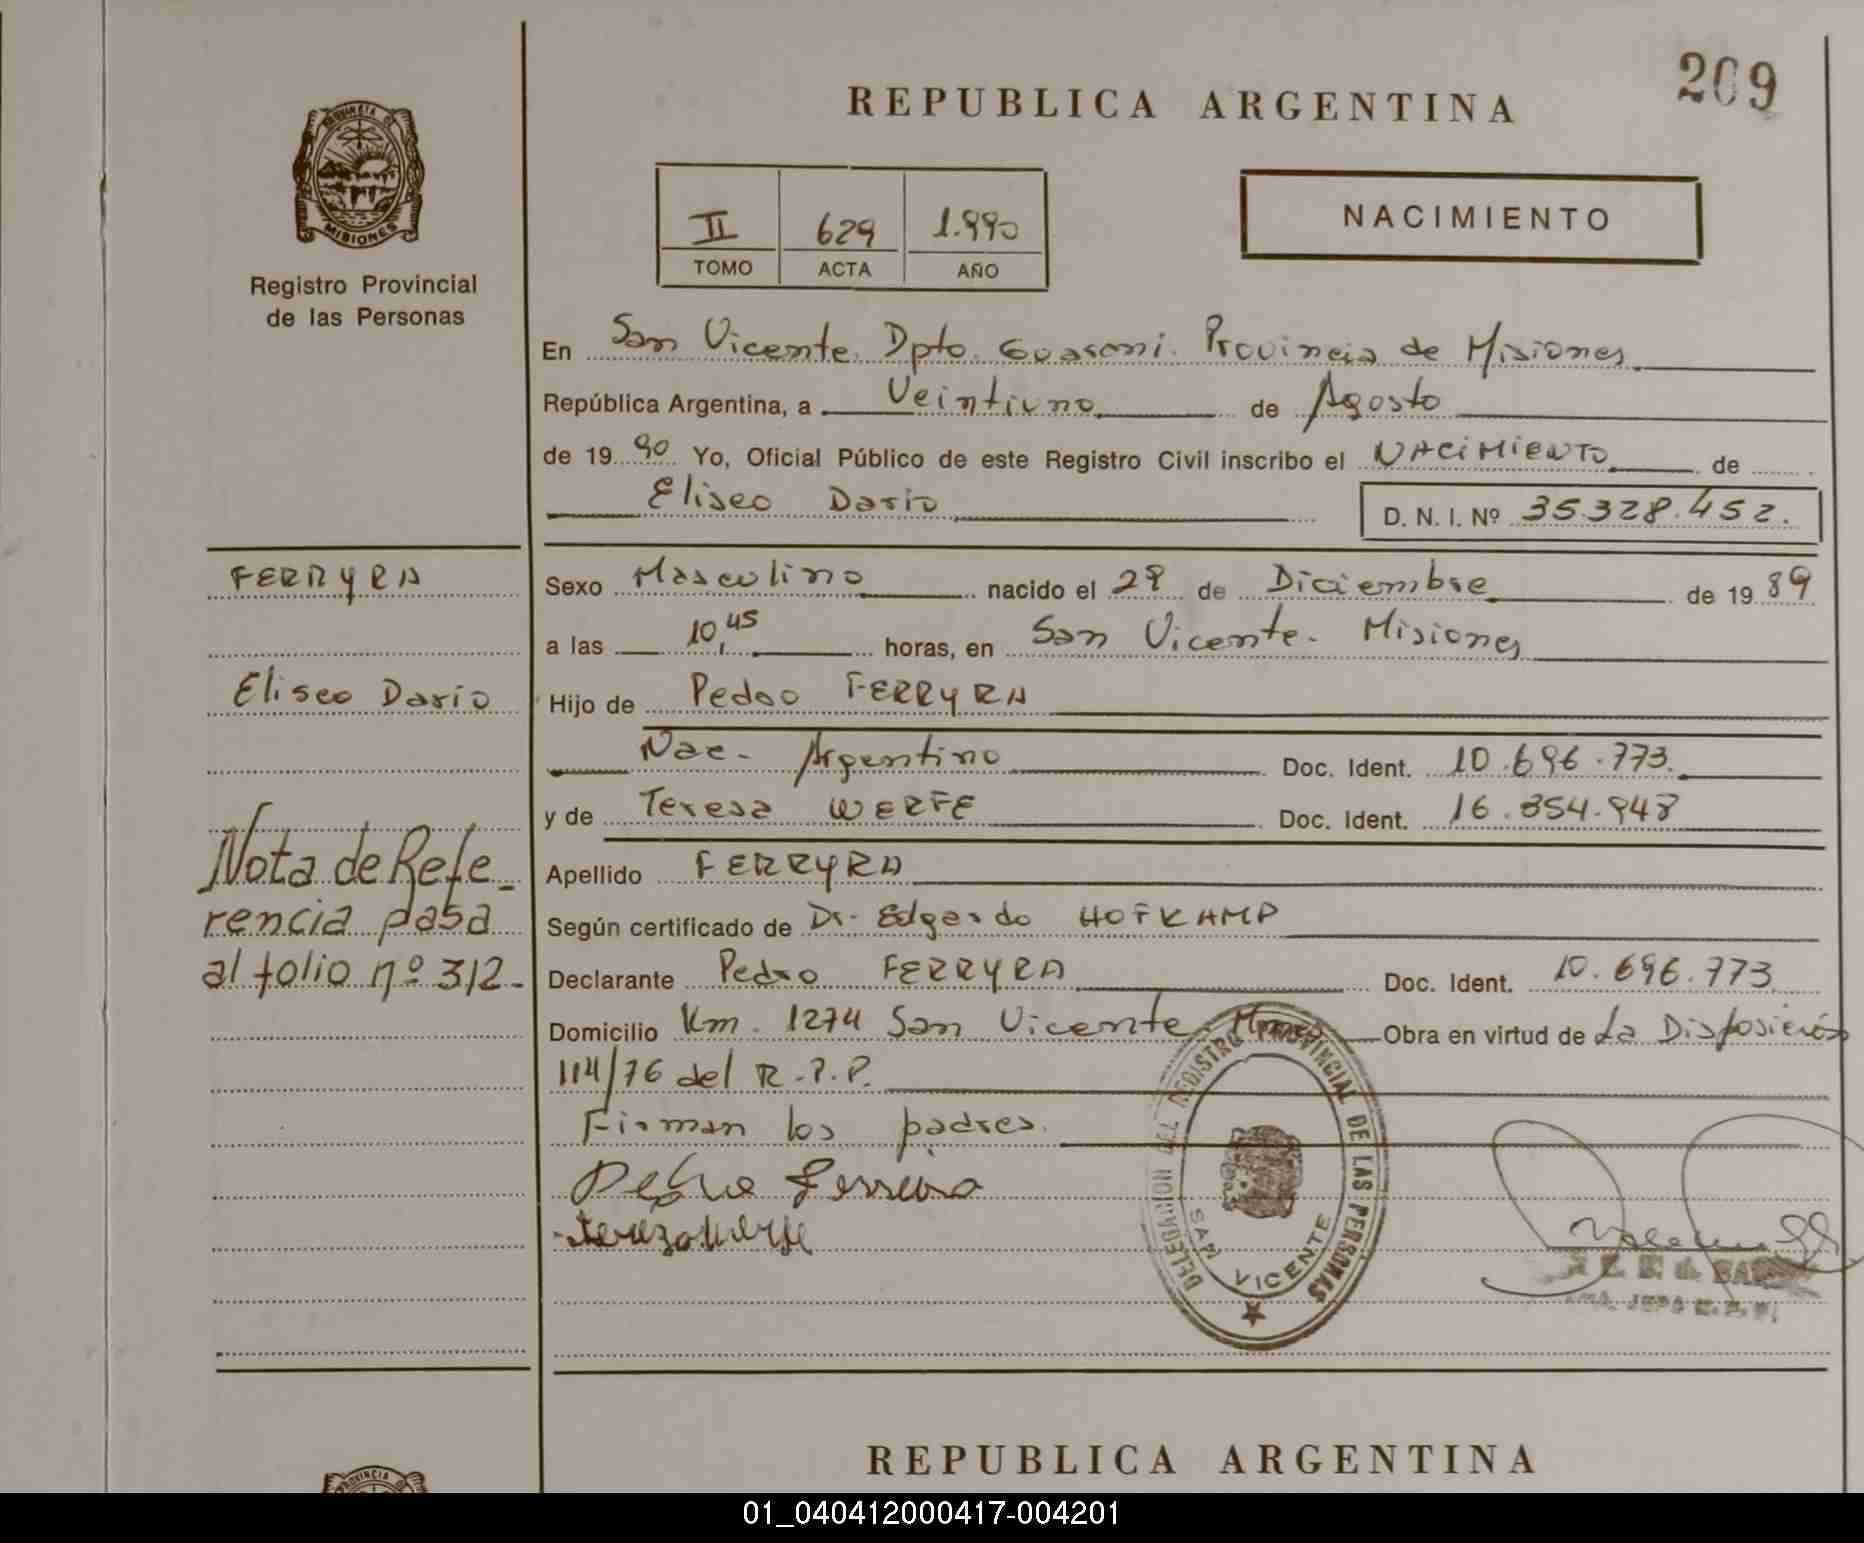 209
REPUBLICA ARGENTINA
PROVINCIA D
MISIONES
Registro Provincial
de las Personas
II 629 1.990
TOMO ACTA AÑO
NACIMIENTO
En San Vicente. Dpto. Guarani. Provincia de Misiones
República Argentina, a Veintiuno de Agosto
de 19 90 Yo, Oficial Público de este Registro Civil inscribo el NACIMIENTO de
Eliseo Dario D. N. I. Nº 35.328.452.
FERRYRA
Sexo Masculino nacido el 28 de Diciembre de 19 89
a las 10,45 horas, en San Vicente. Misiones
Eliseo Dario
Hijo de Pedro FERRYRA
Nac. Argentino Doc. Ident. 10.696.773.
y de Teresa WERFE Doc. Ident. 16.854.948
Nota de Refe_
rencia pasa
al folio nº 312.-
Apellido FERRYRA
Según certificado de Dr. Edgardo HOFKAMP
Declarante Pedro FERRYRA Doc. Ident. 10.696.773
Domicilio Km. 1274 San Vicente. Obra en virtud de La Disposición
114/76 del R.P.P.
Firman los padres.
Pedro Ferreira
tereza Werfe
DELEGACION DEL REGISTRO PROVINCIAL DE LAS PERSONAS
SAN VICENTE
REPUBLICA ARGENTINA
PROVINCIA
01_040412000417-004201